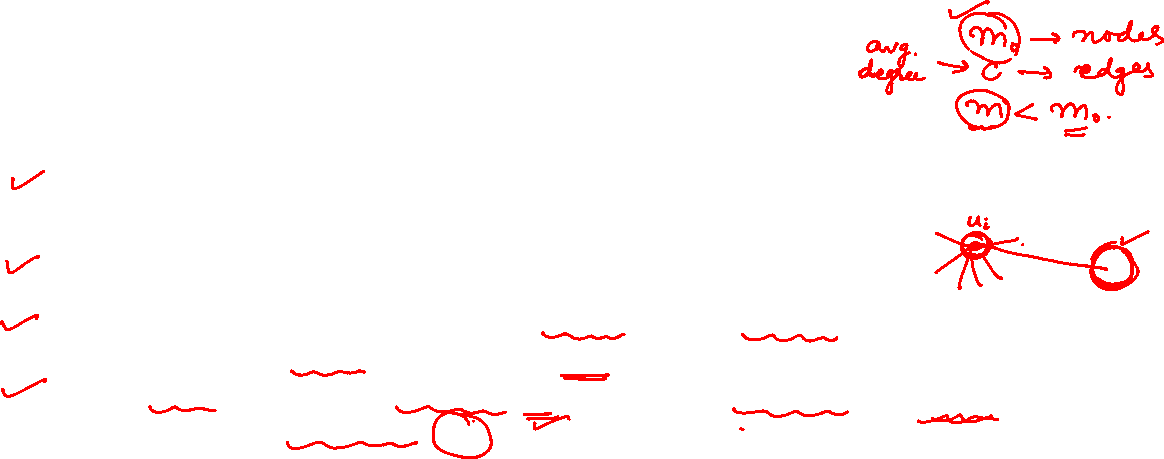 m₀ → nodes
avg. degree → c → edges
m < m₀.
uᵢ